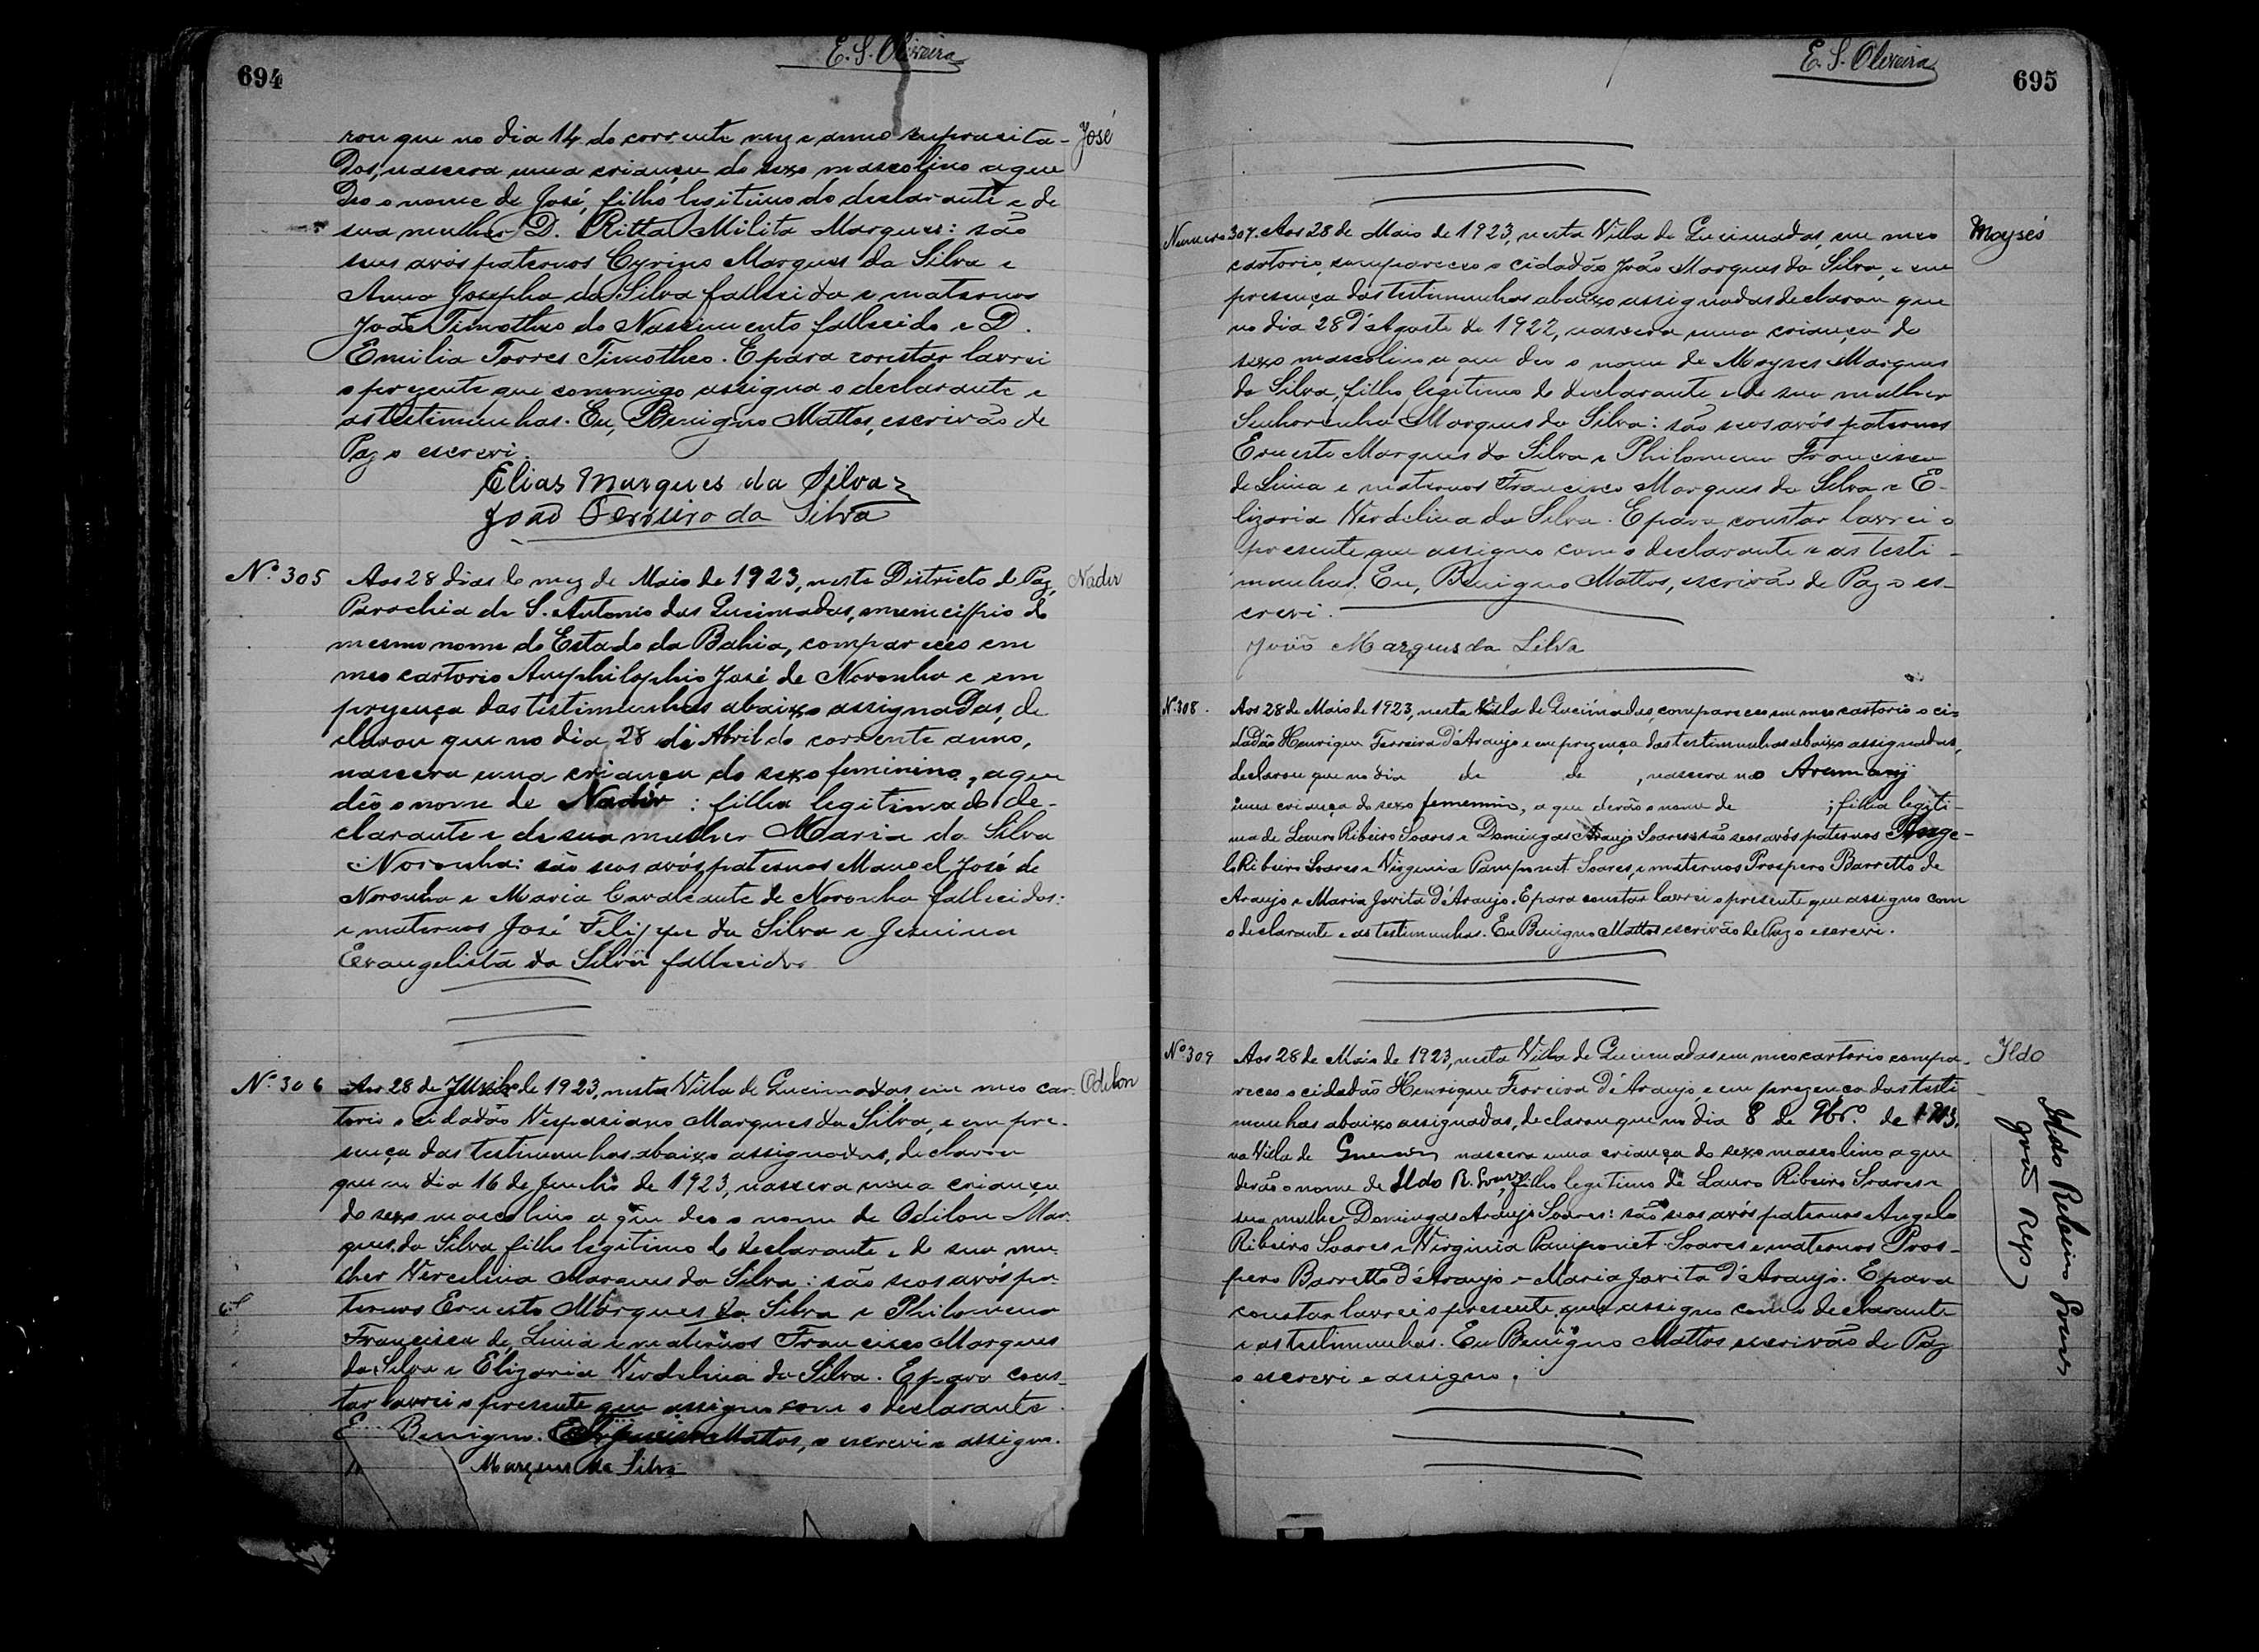 694
E. S. Oliveira
rou que no dia 14 do corrente mez e anno suprasita-
José
dos, nascera uma criança do sexo mascolino a que
deo o nome de José, filho legitimo do declarante e de
sua mulher D. Ritta Milita Marques: são
seus avós paternos Cyrino Marques da Silva e
Anna Josepha da Silva fallecida e maternos
João Timotheo do Nascimento fallecido e D.
Emilia Torres Timotheo. E para constar lavrei
o prezente que commigo assigna o declarante e
as testimunhas. Eu, Benigno Mattos, escrivão de
Paz o escrevi.
Elias Marques da Silva
João Ferreira da Silva
Nº 305
Aos 28 dias do mez de Maio de 1923, neste Districto de Paz,
Nadir
Parochia de S. Antonio das Queimadas, municipio do
mesmo nome do Estado da Bahia, compareceo em
meo cartorio Amphilophio José de Noronha e em
prezença das testimunhas abaixo assignadas, de
clarou que no dia 28 de Abril do corrente anno,
nascera uma criança do sexo feminino, a que
dêo o nome de Nadir: filha legitima do de-
clarante e de sua mulher Maria da Silva
Noronha: são seos avós paternos Manoel José de
Noronha e Maria Cavalcante de Noronha fallecidos:
e maternos José Felippe da Silva e Jesuina
Evangelista da Silva fallecidos
Nº 306
Aos 28 de de 1923, nesta Villa de Queimadas, em meo car-
Odilon
torio o cidadão Vespasiano Marques da Silva, e em pre-
sença das testimunhas abaixo assignadas, declarou
que no dia 16 de Junho de 1923, nascera uma criança
do sexo mascolino a que deo o nome de Odilon Mar-
ques da Silva filho legitimo do declarante e de sua mu-
lher Vercelina Marques da Silva: são seos avós pa
ternos Ernesto Marques da Silva e Philomena
Francisca de Lima e maternos Francisco Marques
da Silva e Elizaria Verdelina da Silva. E para cons-
tar lavrei o presente que assigno com o declarante.
E Benigno Mattos, o escrevi e assigno.
Marques da Silva
E. S. Oliveira
695
Numero 307. Aos 28 de Maio de 1923, nesta Villa de Queimadas, em meo
Moysés
cartorio, compareceo o cidadão João Marques da Silva, e em
presença das testimunhas abaixo assignadas declarou que
no dia 28 d'Agosto de 1922, nascera uma criança do
sexo mascolino a que deo o nome de Moyses Marques
da Silva, filho legitimo do declarante e de sua mulher
Senhorinha Marques da Silva: são seos avós paternos
Ernesto Marques da Silva e Philomena Francisca
de Lima e maternos Francisco Marques da Silva e E-
lizaria Verdelina da Silva. E para constar lavrei o
presente que assigno com o declarante e as testi-
munhas. Eu, Benigno Mattos, escrivão de Paz o es-
crevi.
João Marques da Silva
Nº 308.
Aos 28 de Maio de 1923, nesta Villa de Queimadas, compareceo em meo cartorio o ci-
dadão Henrique Ferreira d'Araujo e em prezença das testimunhas abaixo assignadas,
declarou que no dia de de , nascera no Arumary
uma criança do sexo femenino, a que derão o nome de ; filha legiti-
ma de Lauro Ribeiro Soares e Domingas Araujo Soares: são seos avós paternos Ange-
lo Ribeiro Soares e Virginia Pamponet Soares, e maternos Prospero Barretto de
Araujo e Maria Javita d'Araujo. E para constar lavrei o presente que assigno com
o declarante e as testimunhas. Eu Benigno Mattos escrivão de Paz o escrevi.
Nº 309
Aos 28 de Maio de 1923, nesta Villa de Queimadas em meo cartorio compa-
Ildo
receo o cidadão Henrique Ferreira d'Araujo, e em prezença das testi
munhas abaixo assignadas, declarou que no dia 8 de 9brº de
na Villa de nascera uma criança do sexo mascolino a que
derão o nome de Ildo R. Soares, filho legitimo de Lauro Ribeiro Soares e
sua mulher Domingas Araujo Soares: são seos avós paternos Angelo
Ribeiro Soares e Virginia Pamponet Soares e maternos Pros-
pero Barretto d'Araujo e Maria Javita d'Araujo. E para
constar lavrei o presente que assigno com o declarante
e as testimunhas. Eu Benigno Mattos escrivão de Paz
o escrevi e assigno.
Ildo Ribeiro Soares